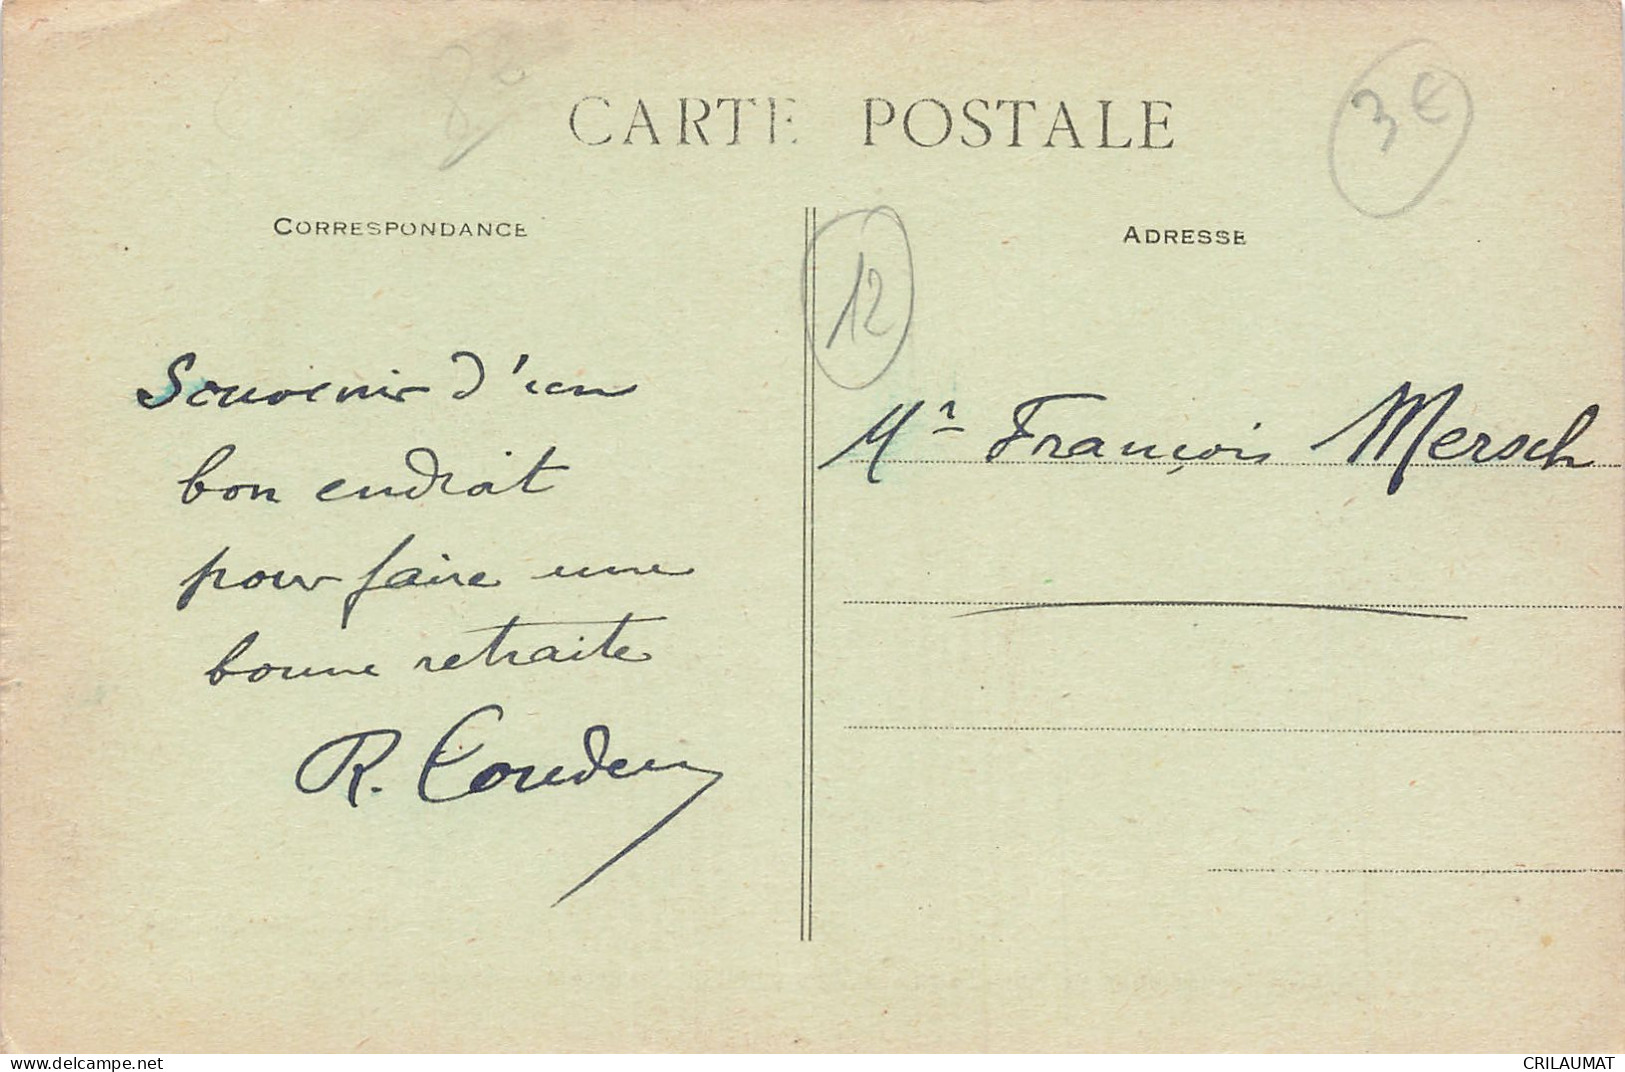 8€
CARTE POSTALE
3€
CORRESPONDANCE
ADRESSE
12
Souvenir d'un
bon endroit
pour faire une
bonne retraite
R.
Mr François Mersch
delcampe.net
CRILAUMAT